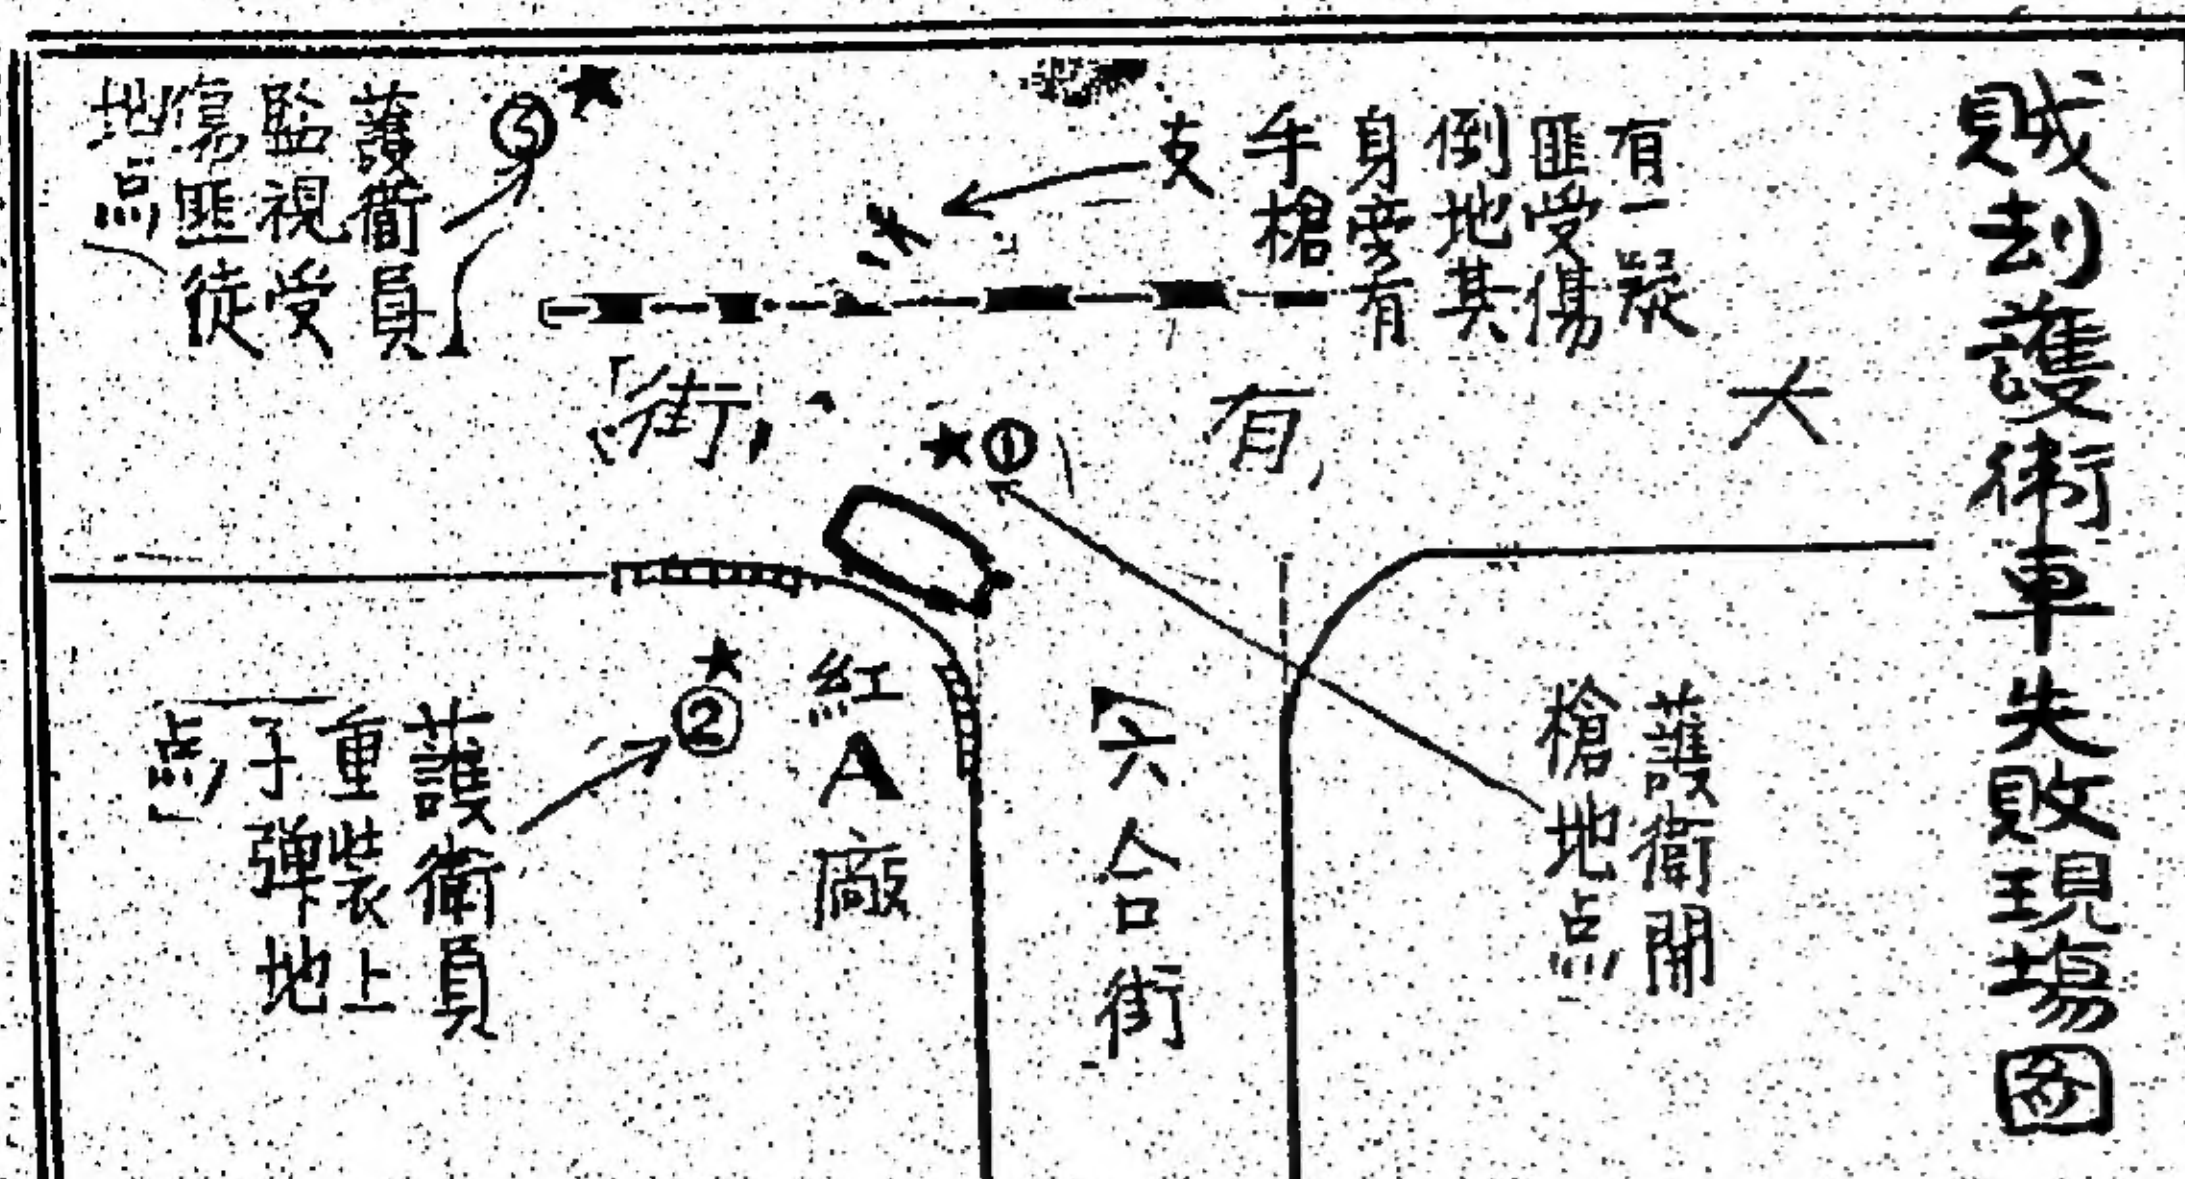 賊刦護衛車失敗現場図
有一疑
匪受傷
倒地其
身旁有
手槍
支
③
護衛員
監視受
傷匪徒
地点
大有街
①
護衛開
槍地点
六合街
紅A廠
②
護衛員
重裝上
子彈地
点